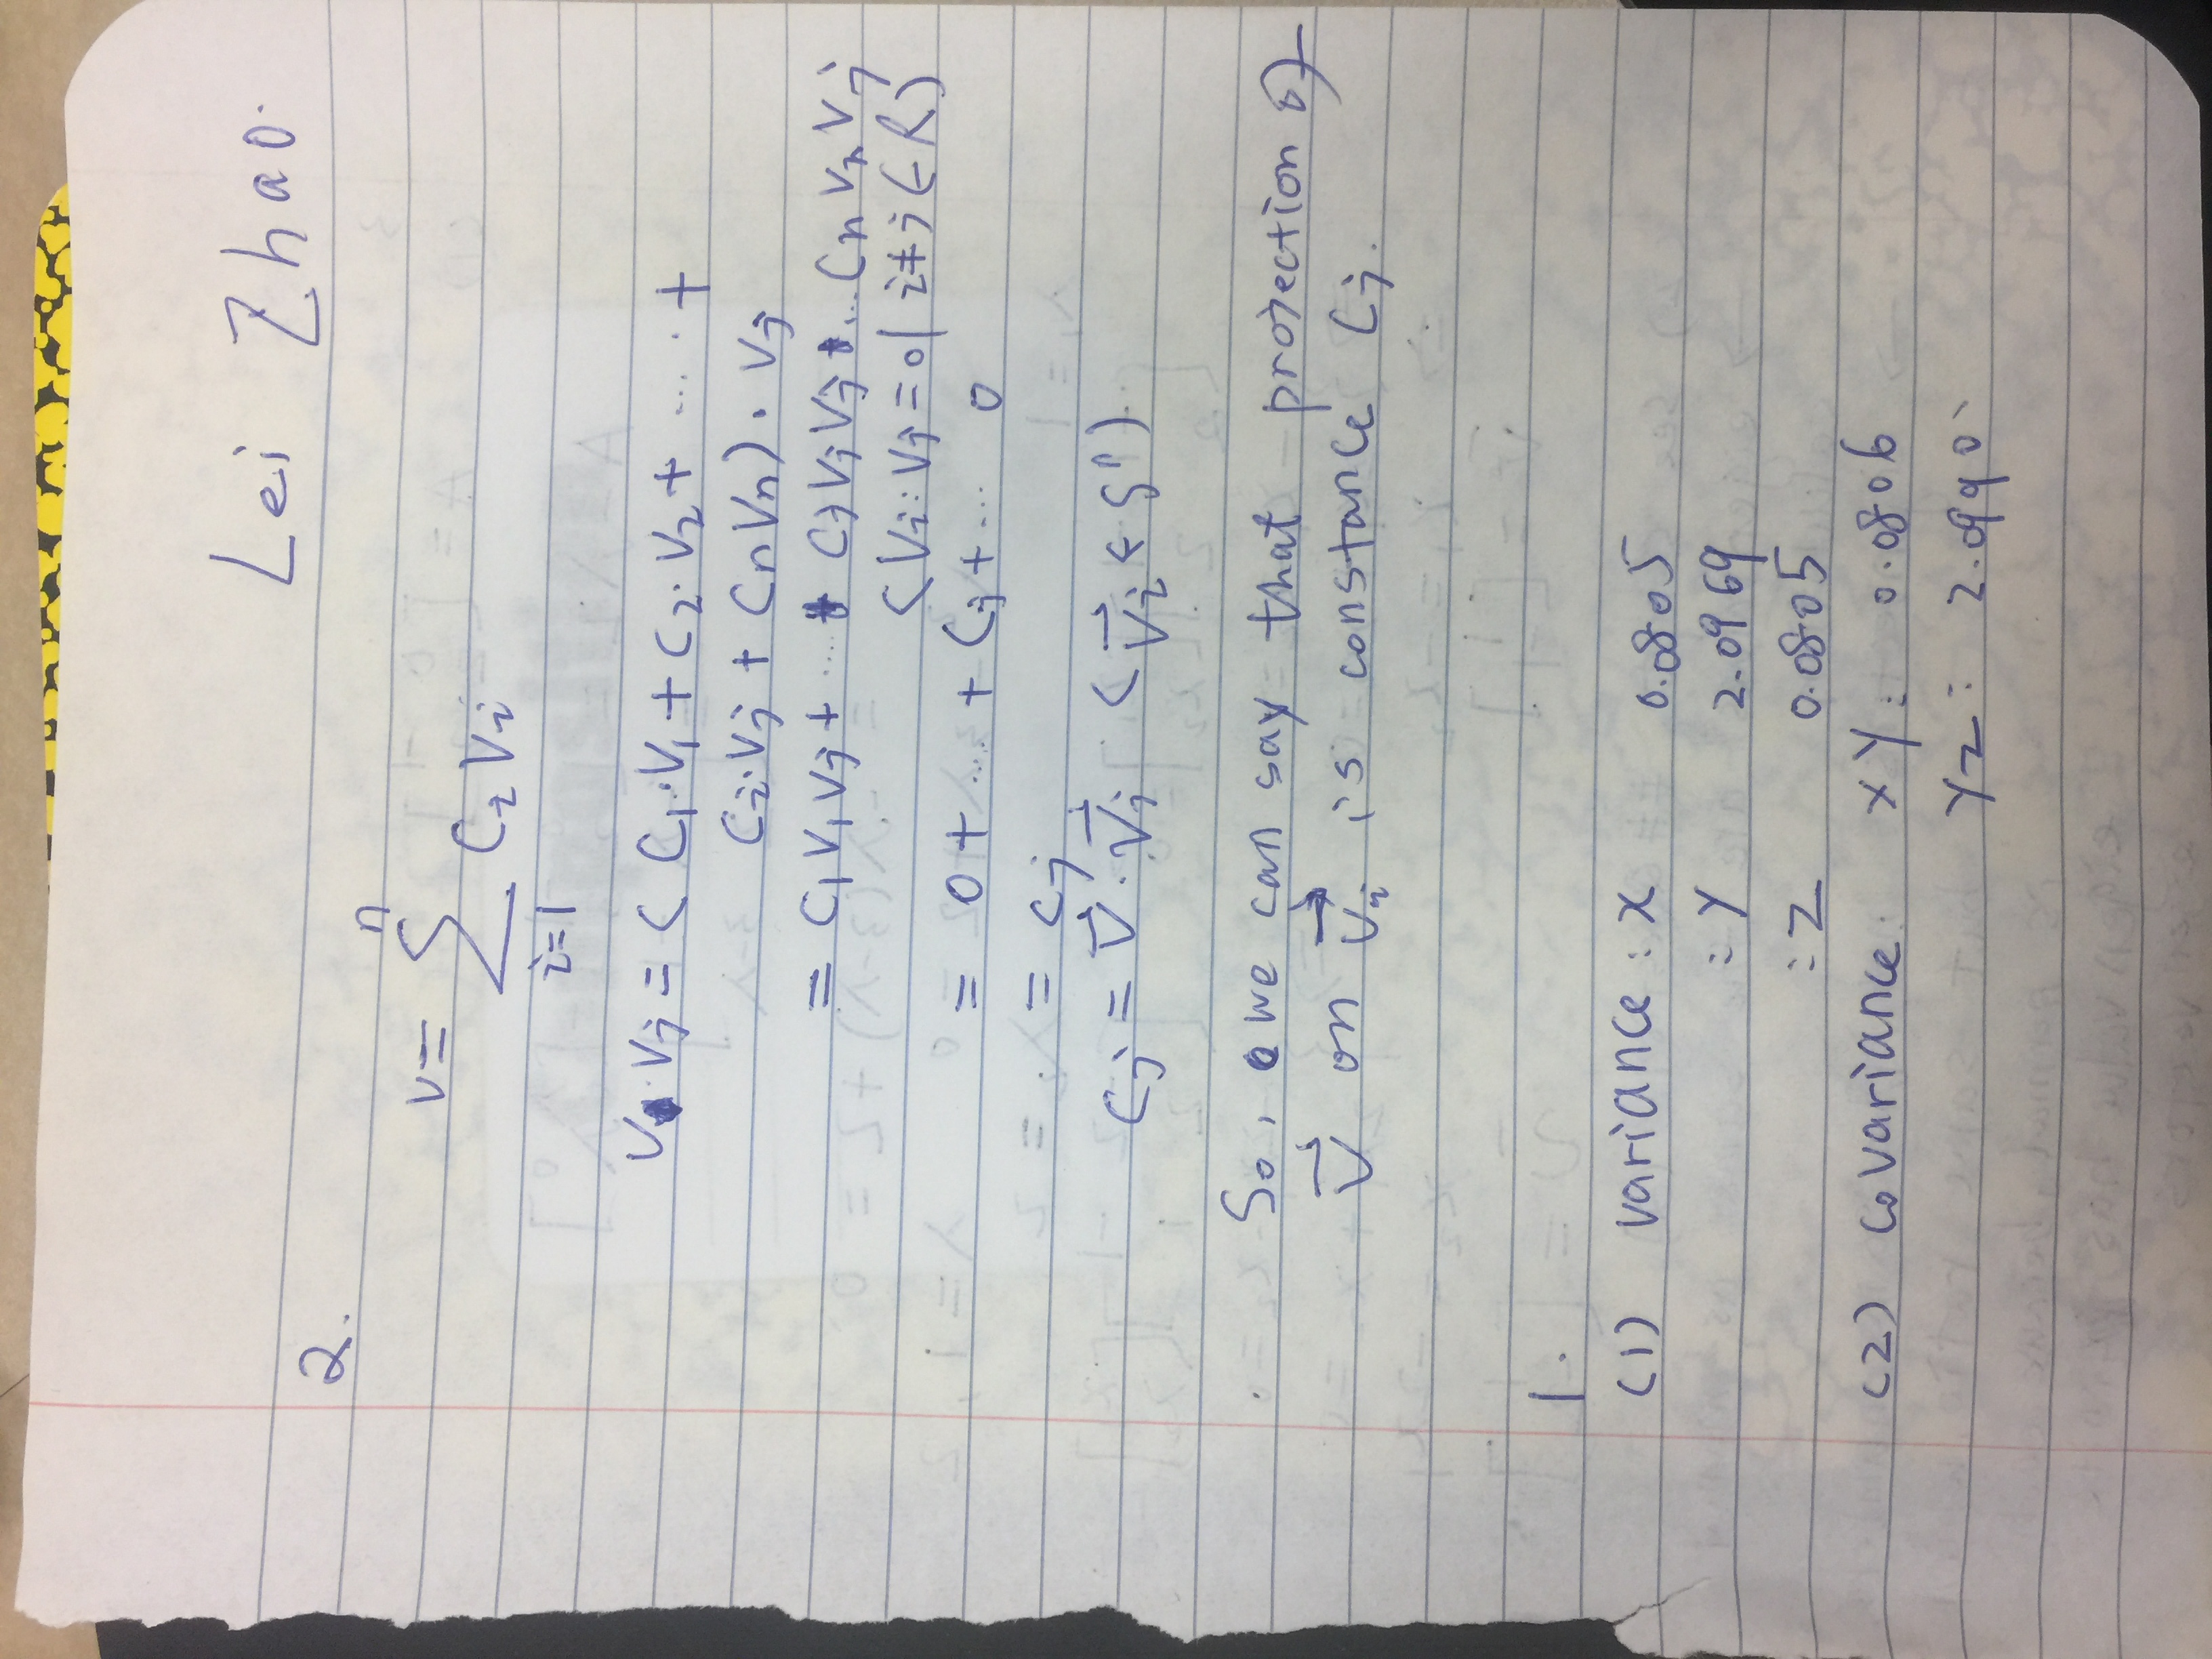 Lei Zhao.
2.
n
v = ∑ CiVi
i=1
V·Vj = ( C1·V1 + C2·V2 + .... +
Ci·Vj + CnVn) · Vj
= C1V1Vj + ... CjVjVj ... CnVnVj
(Vi·Vj = 0 | i≠j ∈ R)
= 0 + ... + Cj + ... 0
= Cj
Cj = V⃗·V⃗j (V⃗i ∈ S")
So, we can say that protection of
V⃗ on V⃗i is constance Cj.
1.
(1) variance : X 0.0805
: Y 2.0969
: Z 0.0805
(2) covariance: XY: 0.0806
YZ: 2.0990